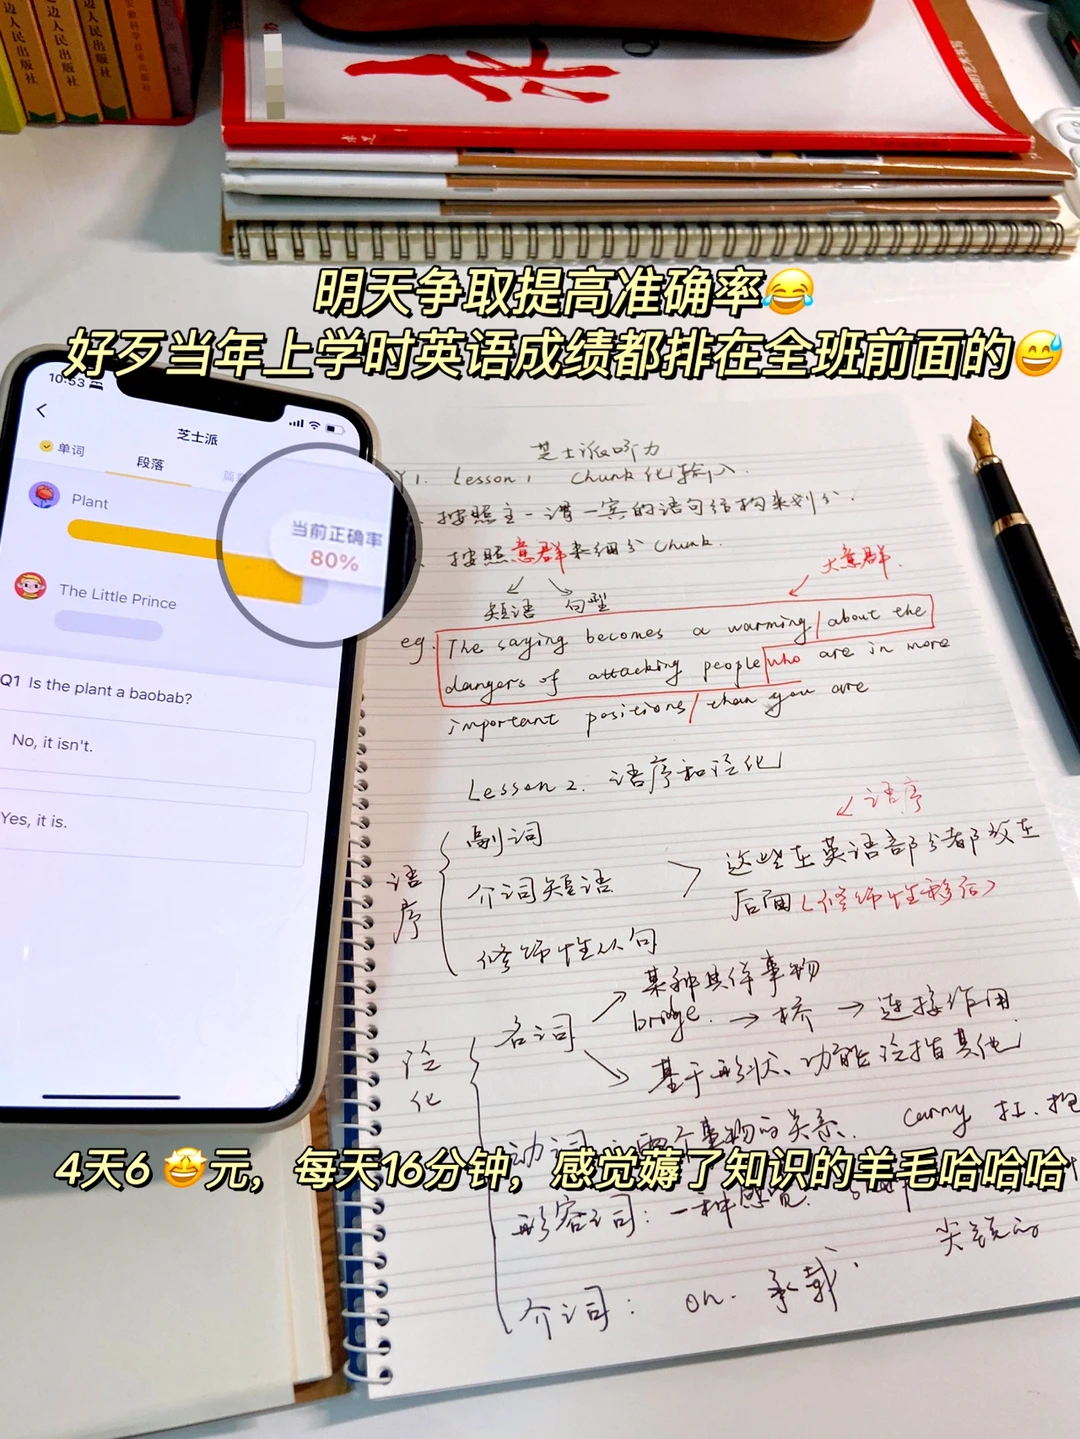 边人民出版社
边人民出版社
边人民出版社
安徽科学技术出版社
明天争取提高准确率😂
好歹当年上学时英语成绩都排在全班前面的😅
10:53
芝士派
单词
段落
Plant
当前正确率
80%
The Little Prince
Q1 Is the plant a baobab?
No, it isn't.
Yes, it is.
芝士派听力
Y1. Lesson 1 Chunk化输入.
按照主一谓一宾的语句结构来划分.
按照意群来细分Chunk.
大意群.
短语 句型
eg. The saying becomes a warming/about the
dangers of attacking people who are in more
important positions/than you are
Lesson 2. 语序和泛化
语序
副词
介词短语
修饰性从句
语序
这些在英语部分都放在
后面(修饰性移后)
泛化
名词
某种具体事物
bridge. → 桥 → 连接作用
基于形状、功能泛指其他
动词 两个事物的关系. carry 扛、抱
4天6🤩元，每天16分钟，感觉薅了知识的羊毛哈哈哈
形容词: 一种感觉.
尖锐的
介词: on. 承载.